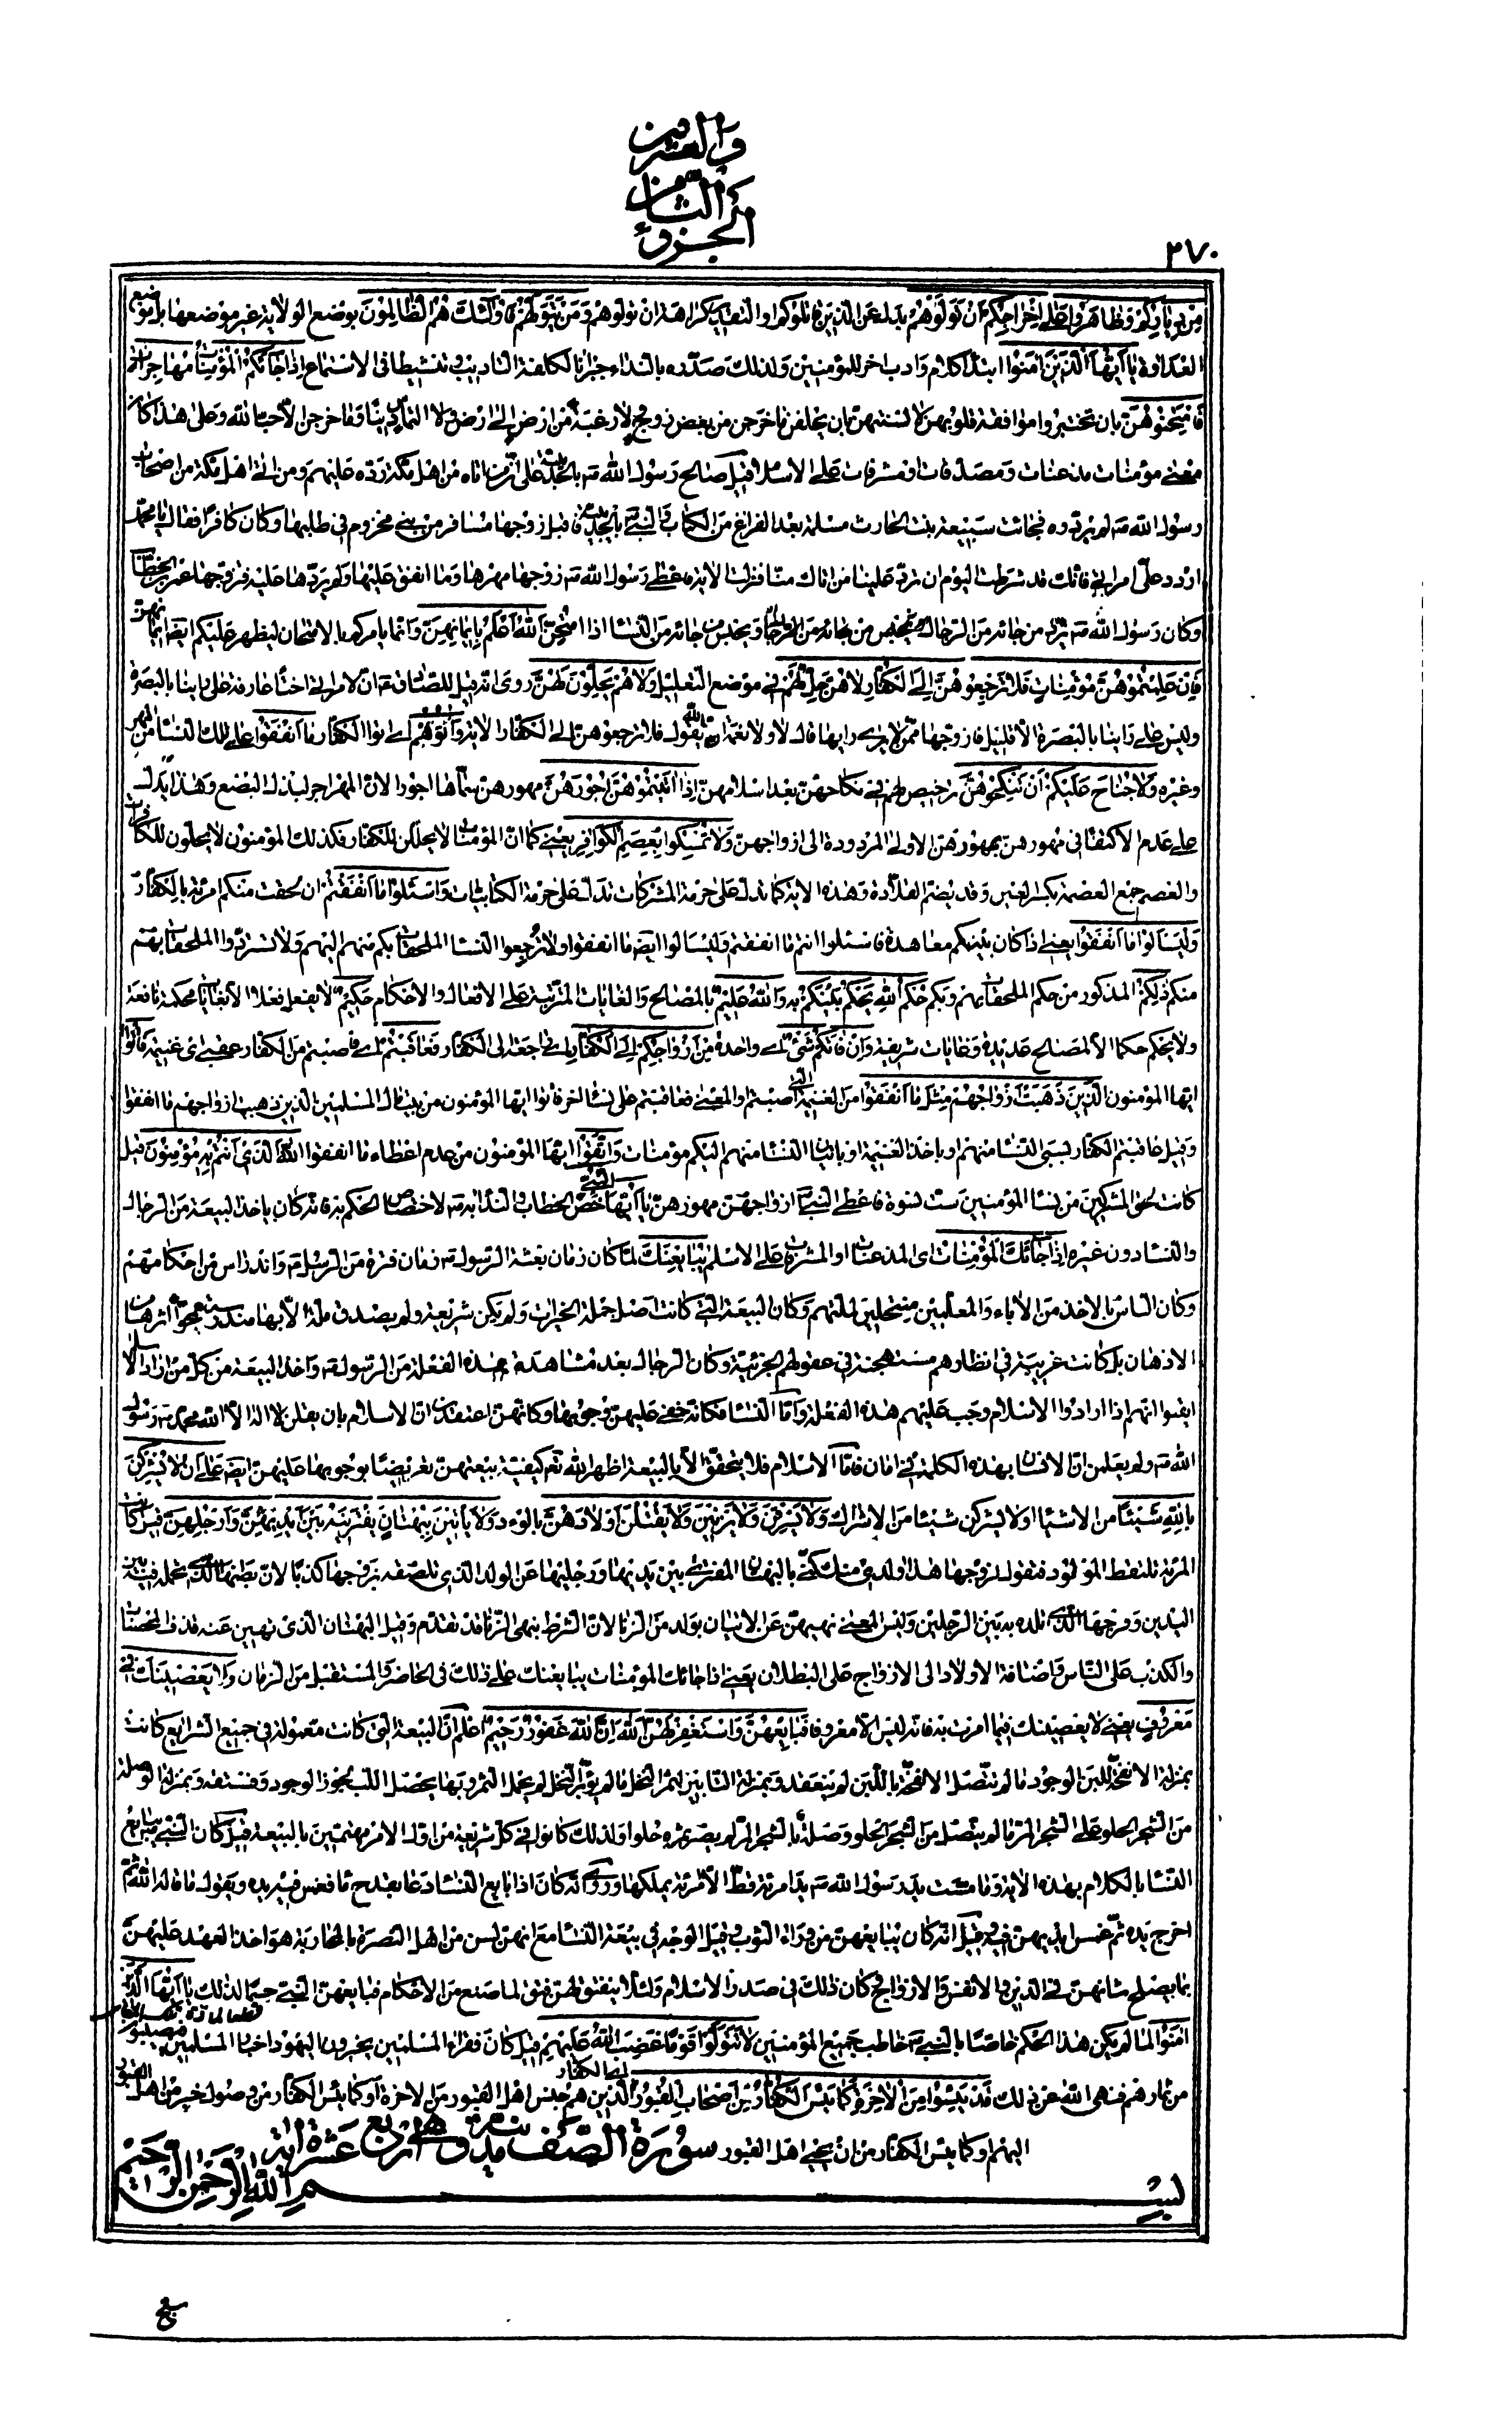 الجزؤ الثامن والعشرين
٢٧٠
مِنْ دِيٰارِكُمْ وَظٰاهَرُوا عَلىٰ اِخْرٰاجِكُمْ اَنْ تَوَلَّوْهُمْ بدل عن الّذين قٰاتلوكم او التقدير كراهة ان تولّوهم وَمَنْ يَتَوَلَّهُمْ فَاُولٰئِكَ هُمُ الظّٰالِمُونَ بوضع الولاية غير موضعها بل موضع
العداوة يٰا اَيُّهَا الَّذِينَ اٰمَنُوا ابتداء كلام وادب اخر للمؤمنين ولذلك صدّره بالنداء جبرانا لكلفة التأديب وتنشيطا فى الاستماع اِذٰا جٰاءَكُمُ الْمُؤْمِنٰاتُ مُهٰاجِرٰاتٍ
فَامْتَحِنُوهُنَّ بان تختبروا موافقة قلوبهن لالسنتهن بان يحلفن ما خرجن من بغض زوج ولا رغبة من ارض الى ارض ولا التماس دنيا وما خرجن الا حبا لله وعلى هذا كان
معنى مؤمنات مذعنات ومصدقات او مشرفات على الاسلام قيل صالح رسول الله ص بالحديبية على ان من اتاه من اهل مكة رده عليهم ومن اتى اهل مكة من اصحاب
رسول الله ص لم يردّوه فجائت سبيعة بنت الحارث مسلمة بعد الفراغ من الكتاب والنبى ص بالحديبية فاقبل زوجها مسافر من بنى مخزوم فى طلبها وكان كافرا فقال يا محمد
اردد علىّ امراتى فانك قد شرطت اليوم ان ترد علينا من اتاك منا فنزلت الاية فاعطى رسول الله ص زوجها مهرها وما انفق عليها ولم يردّها عليه فزوجها عمر بن الخطاب
وكان رسول الله ص يردّ من جائه من الرجال ويحبس من جائه من النساء اذا امتحنّ اَللّٰهُ اَعْلَمُ بِاِيمٰانِهِنَّ وانما يامركم بالامتحان ليظهر عليكم ايضا ايمانهن
فَاِنْ عَلِمْتُمُوهُنَّ مُؤْمِنٰاتٍ فَلٰا تَرْجِعُوهُنَّ اِلَى الْكُفّٰارِ لٰا هُنَّ حِلٌّ لَهُمْ فى موضع التعليل وَلٰا هُمْ يَحِلُّونَ لَهُنَّ روى انه قيل للصادق ع ان لامراتى اختا عارفة على راينا بالبصرة
وليس على راينا بالبصرة الا قليل فازوجها ممن لا يرى رايها قال لا ولا نعمة ان الله يقول فلا ترجعوهن الى الكفار الاية وَاٰتُوهُمْ اى اتوا الكفار مٰا اَنْفَقُوا على تلك النساء من المهر
وغيره وَلٰا جُنٰاحَ عَلَيْكُمْ اَنْ تَنْكِحُوهُنَّ ترخيص لهم فى نكاحهن بعد اسلامهن اِذٰا اٰتَيْتُمُوهُنَّ اُجُورَهُنَّ مهورهن سماها اجورا لان المهر اجر لبذل البضع وهذا يدل
على عدم الاكتفاء فى مهورهن بمهورهن الاولى المردودة الى ازواجهن وَلٰا تُمْسِكُوا بِعِصَمِ الْكَوٰافِرِ يعنى كما ان المؤمنات لا يحللن للكفار فكذلك المؤمنون لا يحلّون للكافرات
والعصم جمع العصمة بكسر العين وقد يضم القلادة وهذه الاية كما تدل على حرمة المشركات تدل على حرمة الكتابيات وَاسْئَلُوا مٰا اَنْفَقْتُمْ ان لحقت منكم امرئة بالكفار
وَلْيَسْئَلُوا مٰا اَنْفَقُوا يعنى اذا كان بينكم معاهدة فاسئلوا انتم ما انفقتم وليسالوا ايضا ما انفقوا ولا ترجعوا النساء الملحقات بكم منهم اليهم ولا تستردّوا الملحقات بهم
منكم ذٰلِكُمْ المذكور من حكم الملحقات بهم وبكم حُكْمُ اللّٰهِ يَحْكُمُ بَيْنَكُمْ به وَاللّٰهُ عَلِيمٌ بالمصالح والغايات المترتبة على الافعال والاحكام حَكِيمٌ لا يفعل فعلا الا بغايات محكمة نافعة
ولا يحكم حكما الا لمصالح عديدة وغايات شريفة وَاِنْ فٰاتَكُمْ شَىْءٌ اى واحدة مِنْ اَزْوٰاجِكُمْ اِلَى الْكُفّٰارِ اى راجعة الى الكفار فَعٰاقَبْتُمْ اى فاصبتم من الكفار عقبى اى غنيمة فَاٰتُوا
ايها المؤمنون الَّذِينَ ذَهَبَتْ اَزْوٰاجُهُمْ مِثْلَ مٰا اَنْفَقُوا من الغنيمة التى اصبتم والمعنى فعاقبتم على نساء اخر فاتوا ايها المؤمنون من بيت مال المسلمين الذين ذهبت ازواجهم ما انفقوا
وقيل عاقبتم الكفار بسبى النساء منهم او باخذ الغنيمة او باتيان النساء منهم اليكم مؤمنات وَاتَّقُوا ايها المؤمنون من عدم اعطاء ما انفقوا اللّٰهَ الَّذِى اَنْتُمْ بِهِ مُؤْمِنُونَ قيل
كانت لحق المشركين من نساء المؤمنين ست نسوة فاعطى النبى ص ازواجهن مهورهن يٰا اَيُّهَا النَّبِىُّ خص الخطاب والنداء به ص لاختصاص الحكم به فانه كان ياخذ البيعة من الرجال
والنساء دون غيره اِذٰا جٰاءَكَ الْمُؤْمِنٰاتُ اى المذعنات او المشرفات على الاسلام يُبٰايِعْنَكَ لما كان زمان بعثة الرسول ص زمان فترة من الرسل ص واندراس من احكامهم
وكان الناس بالاخذ من الاباء والمعلمين منتحلين لملتهم وكان البيعة التى كانت اصل جملة الخيرات ولم يكن شريعة ولم يصدق ملة الا بها مندرسة ممحوّا اثرها من
الاذهان بل كانت غريبة فى انظارهم مستهجنة فى عقولهم الجزئية وكان الرجال بعد مشاهدة هذه الفعلة من الرسول ص واخذ البيعة من كل من اراد الاسلام
ايقنوا انهم اذا ارادوا الاسلام وجب عليهم هذه الفعلة واما النساء فكانه خفى عليهن وجوبها وكانهن اعتقدن ان الاسلام بان يقلن لا اله الا الله محمد ص رسول
الله ص ولم يعلمن ان الانسان بهذه الكلمة فى امان فاما الاسلام فلا يتحقق الا بالبيعة اظهر الله تعالى كيفية بيعتهن تعريضا بوجوبها عليهن ايضا عَلىٰ اَنْ لٰا يُشْرِكْنَ
بِاللّٰهِ شَيْئًا من الاشياء او لا يشركن شيئا من الاشراك وَلٰا يَسْرِقْنَ وَلٰا يَزْنِينَ وَلٰا يَقْتُلْنَ اَوْلٰادَهُنَّ بالوءد وَلٰا يَأْتِينَ بِبُهْتٰانٍ يَفْتَرِينَهُ بَيْنَ اَيْدِيهِنَّ وَاَرْجُلِهِنَّ قيل كانت
المرئة تلتقط المولود فتقول لزوجها هذا ولدى منك كنّى بالبهتان المفترى بين يديها ورجليها عن الولد الذى تلصقه بزوجها كذبا لان بطنها الذى تحمله فيه بين
اليدين وفرجها الذى تلده به بين الرجلين وليس المعنى نهيهن عن الاتيان بولد من الزنا لان الشرط بنهى الزنا قد تقدم وقيل البهتان الذى نهين عنه قذف المحصنات
والكذب على الناس واضافة الاولاد الى الازواج على البطلان يعنى اذا جائك المؤمنات يبايعنك على ذلك فى الحاضر والمستقبل من الزمان وَلٰا يَعْصِينَكَ فِى
مَعْرُوفٍ يعنى لا يعصينك فيما امرت به فانه ليس الا معروفا فَبٰايِعْهُنَّ وَاسْتَغْفِرْ لَهُنَّ اللّٰهَ اِنَّ اللّٰهَ غَفُورٌ رَحِيمٌ اعلم ان البيعة التى كانت معمولة فى جميع الشرايع كانت
بمنزلة الانفحة للبن الوجود ما لم يتصل الانفحة باللبن لم ينعقد وبمنزلة التابير لثمر النخل ما لم يؤبّر النخل لم يحمل الثمر وبها يحصل اللب لجوز الوجود وفستقه وبمنزلة الوصلة
من الشجر الحلو على الشجر المرّ ما لم يتصل من الشجر الحلو وصلة بالشجر المر لم يصر ثمره حلوا ولذلك كانوا فى كل شريعة من اول الامر مهتمين بالبيعة قيل كان النبى ص يبايع
النساء بالكلام بهذه الاية وما مست يد رسول الله ص يد امرئة قط الا امرئة يملكها وروى انه كان اذا بايع النساء دعا بقدح ماء فغمس فيه يده ويقول ما قاله الله ثم
اخرج يده ثم غمسن ايديهن فيه وقيل انه كان يبايعهن من وراء الثوب وقيل الوجه فى بيعة النساء مع انهن لسن من اهل النصرة بالمحاربة هو اخذ العهد عليهن
بما يصلح شانهن فى الدين والانفس والازواج وكان ذلك فى صدر الاسلام ولئلا ينفتق لهن فتق لما صنع من الاحكام فبايعهن النبى ص حسما لذلك يٰا اَيُّهَا الَّذِينَ
اٰمَنُوا لما لم يكن هذا الحكم خاصا بالنبى ص خاطب جميع المؤمنين لٰا تَتَوَلَّوْا قَوْمًا غَضِبَ اللّٰهُ عَلَيْهِمْ قيل كان فقراء المسلمين يخبرون اليهود اخبار المسلمين فيصيبون
من ثمارهم فنهى الله عن ذلك قَدْ يَئِسُوا مِنَ الْاٰخِرَةِ كَمٰا يَئِسَ الْكُفّٰارُ مِنْ اَصْحٰابِ الْقُبُورِ الذين هم جنس اهل القبور من الاخرة او كما يئس الكفار من وصول خير من اهل القبور
اليهم او كما يئس الكفار من ان يحيى اهل القبور سُورَة الصَّف مدنية وهى اربع عشرة اية
بسم الله الرحمن الرحيم